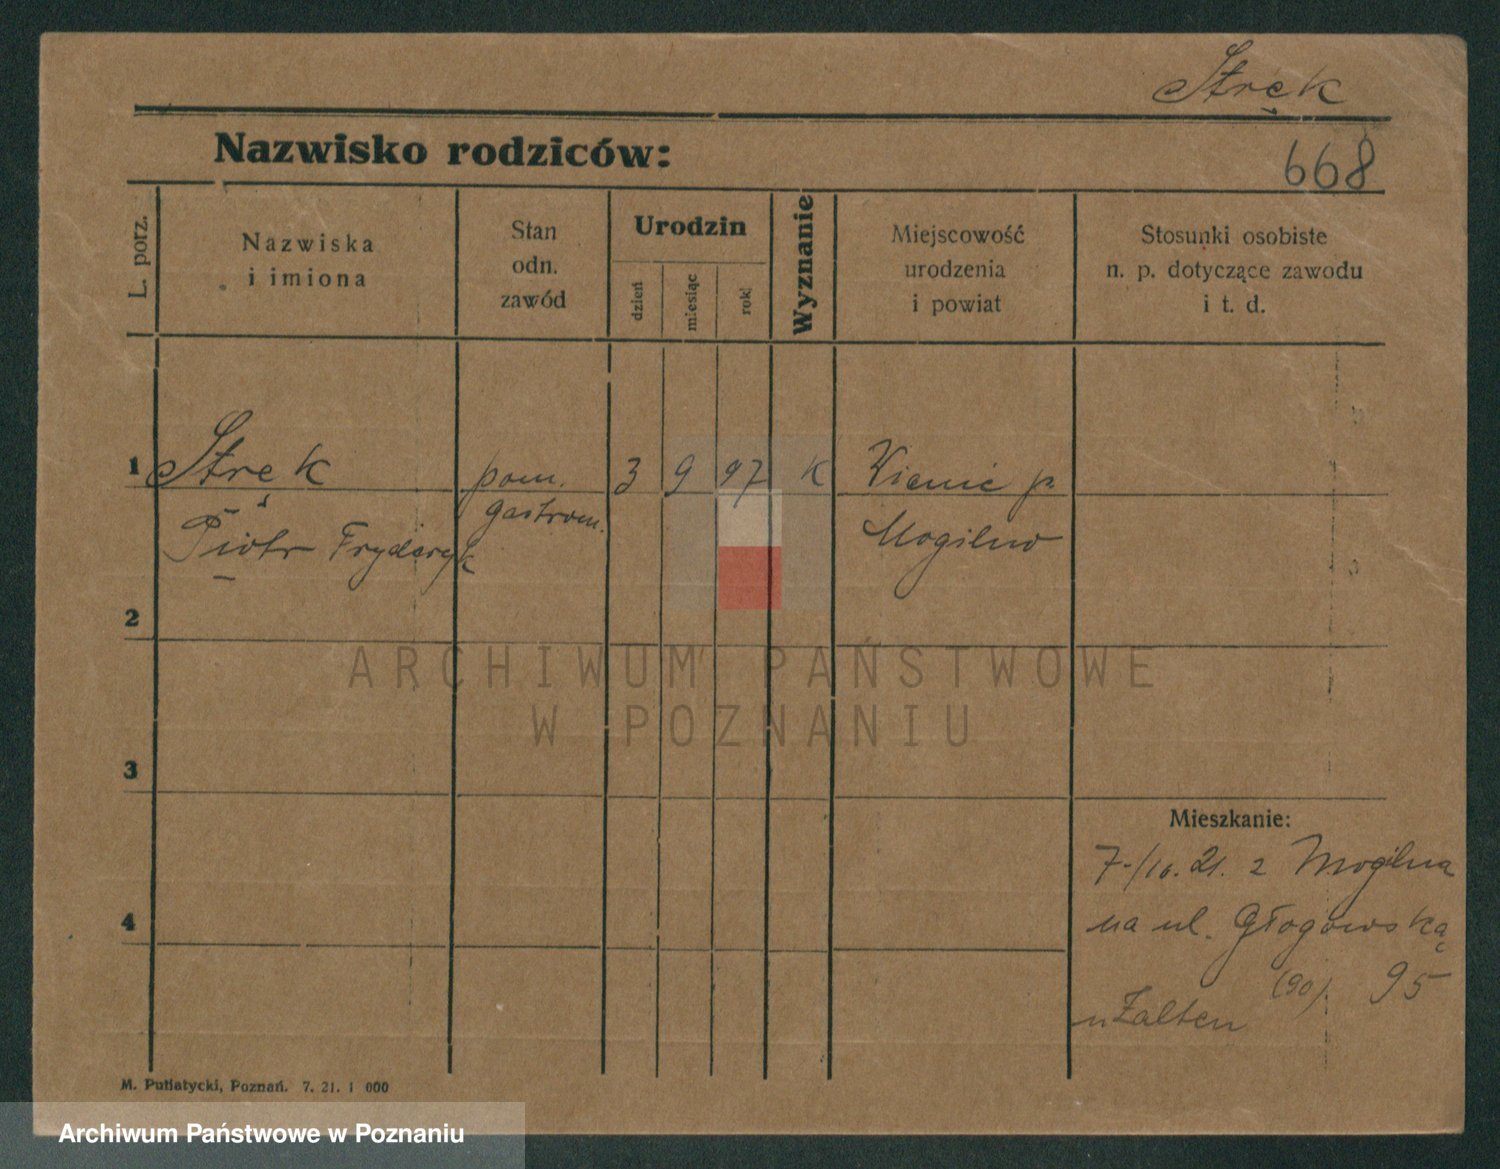 Stręk
Nazwisko rodziców:
668
L. porz.
Nazwiska
i imiona
Stan
odn.
zawód
Urodzin
dzień
miesiąc
rok
Wyznanie
Miejscowość
urodzenia
i powiat
Stosunki osobiste
n. p. dotyczące zawodu
i t. d.
1 Stręk pom. 3 9 97 K Wienic p.
gastron. Mogilno
Piotr Fryderyk
2
3
Mieszkanie:
7./10. 21. z Mogilna
4
na ul. Głogowską
(90) 95
u Zalten
M. Putiatycki, Poznań. 7. 21. 1 000
ARCHIWUM PAŃSTWOWE
W POZNANIU
Archiwum Państwowe w Poznaniu